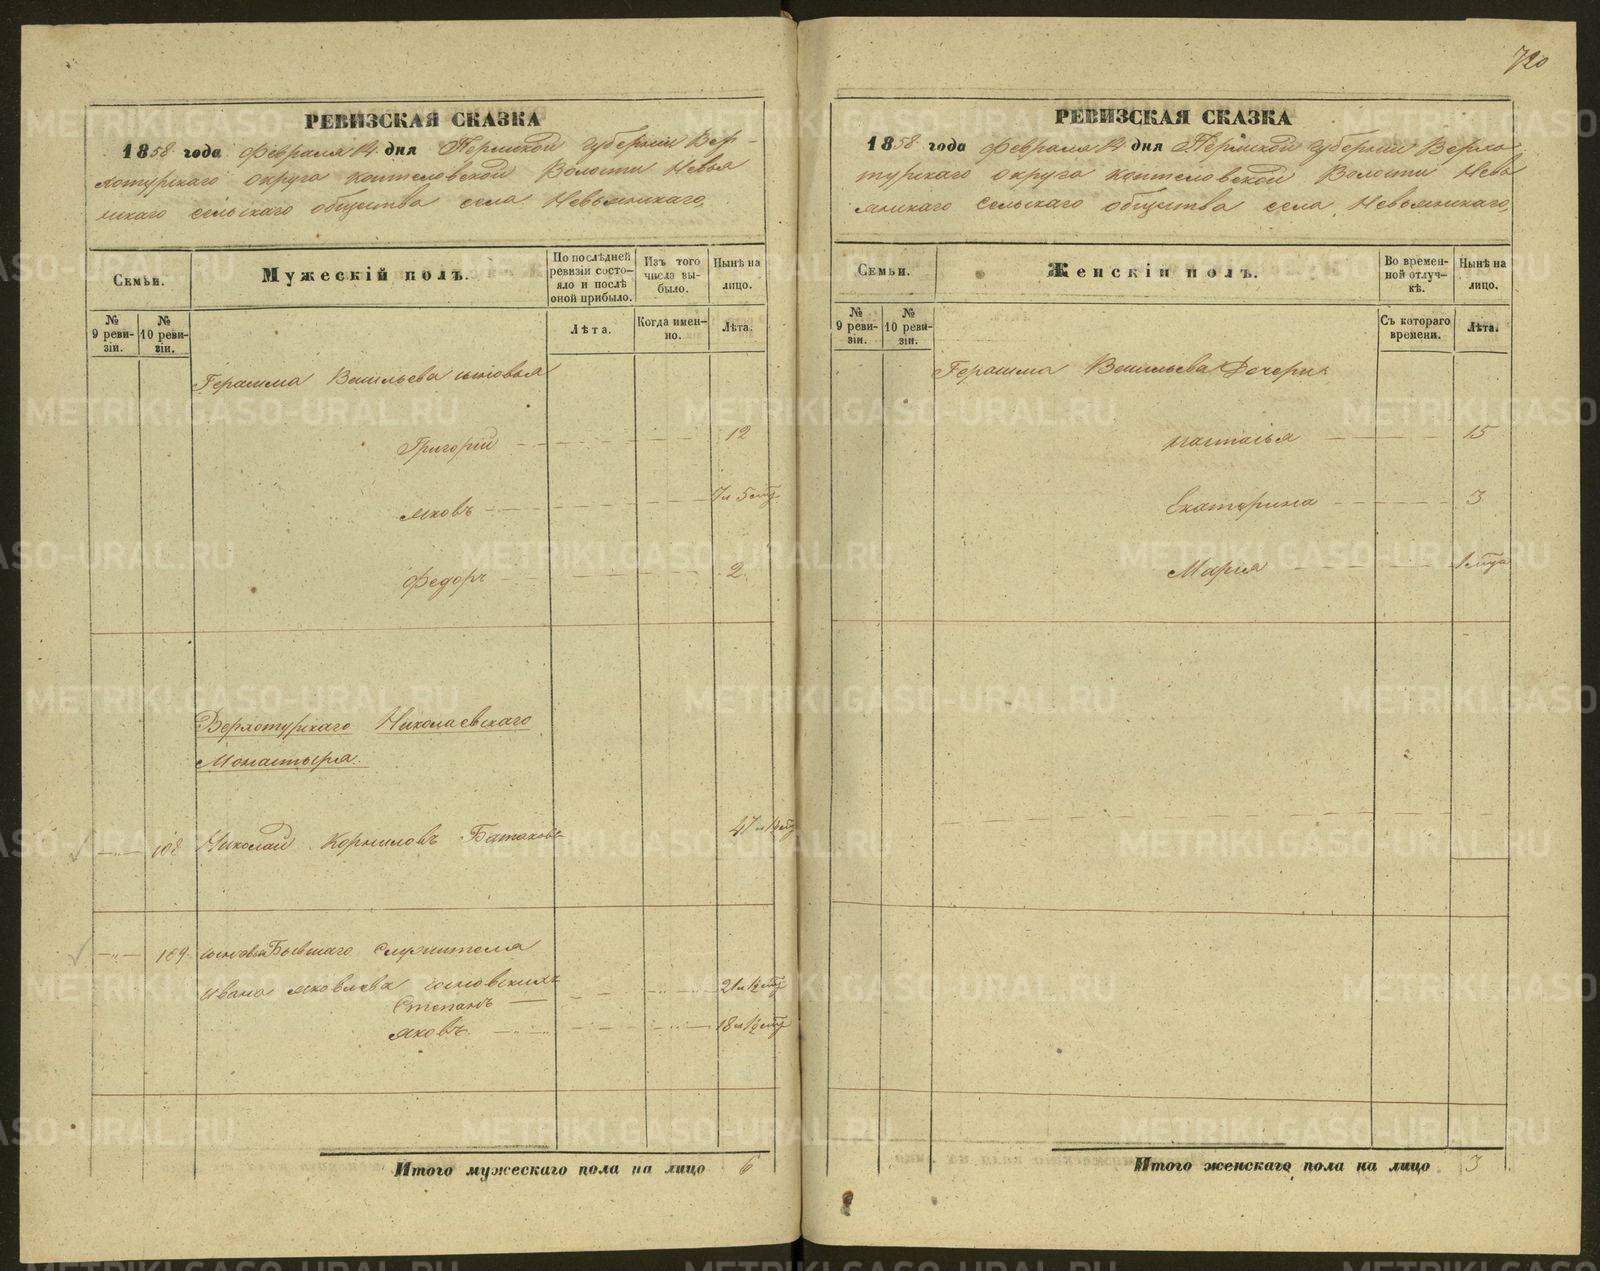 720
РЕВИЗСКАЯ СКАЗКА
1858 года Февраля 14 дня Пермской губернии Вер-
хотурскаго округа Коптеловской Волости Невья
нскаго сельскаго общества села Невьянскаго.
Семьи.
Мужескій полъ.
По послѣдней ревизіи состояло и послѣ оной прибыло.
Изъ того числа выбыло.
Нынѣ на лицо.
№ 9 ревизіи.
№ 10 ревизіи.
Лѣта.
Когда именно.
Лѣта.
Герасима Васильева сыновья
Григорій 12
Яковъ
Федоръ 2
Верхотурскаго Николаевскаго
Монастыря.
108 Николай Корниловъ
109 Бывшаго служителя
Ивана Яковлева
Степанъ
Яковъ
Итого мужескаго пола на лицо 6
РЕВИЗСКАЯ СКАЗКА
1858 года Февраля 14 дня Пермской губернии Верхо
турскаго округа Коптеловской Волости Невь
янскаго сельскаго общества села Невьянскаго,
Семьи.
Женскій полъ.
Во временной отлучкѣ.
Нынѣ на лицо.
№ 9 ревизіи.
№ 10 ревизіи.
Съ котораго времени.
Лѣта.
Герасима Васильева Дочери
Настасья 15
Екатерина 3
Мария
Итого женскаго пола на лицо 3
METRIKI.GASO-URAL.RU